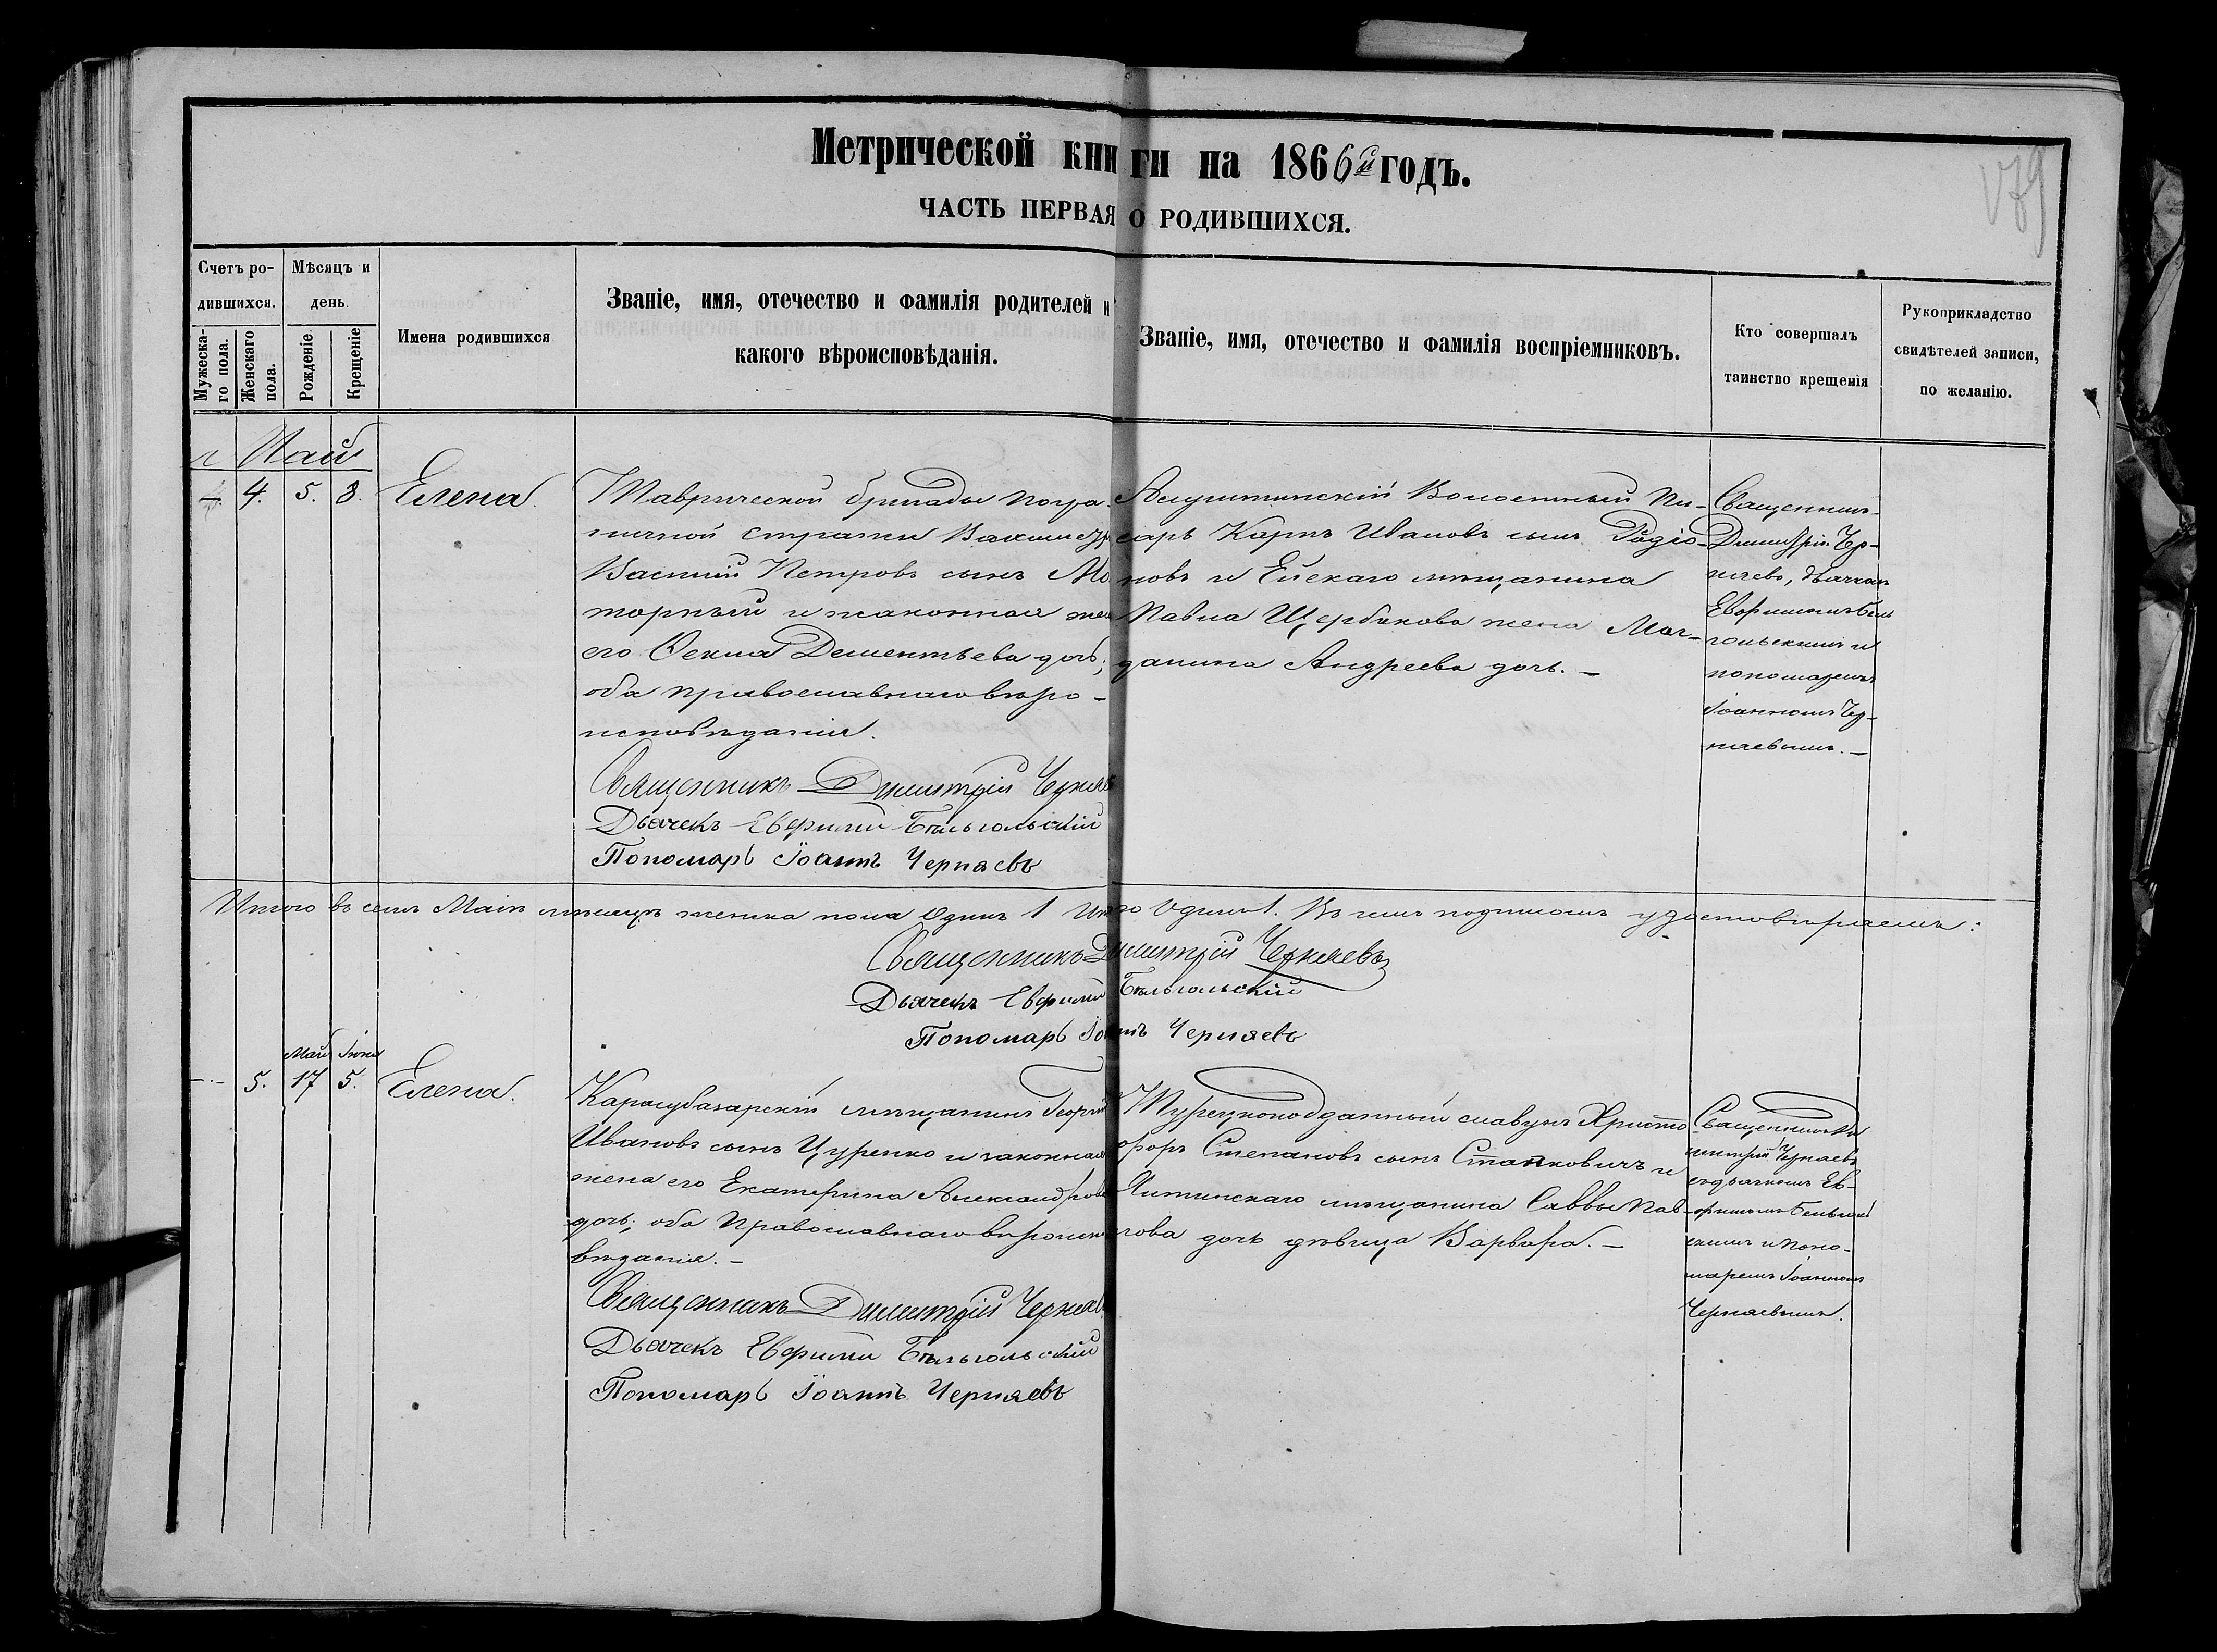 Метрической книги на 1866й годъ.
179
ЧАСТЬ ПЕРВАЯ О РОДИВШИХСЯ.
Счетъ ро-
дившихся.
Мужеска-
го пола.
Женскаго
пола.
Мѣсяцъ и
день.
Рожденіе
Крещеніе
Имена родившихся
Званіе, имя, отечество и фамилія родителей и
какого вѣроисповѣданія.
Званіе, имя, отечество и фамилія воспріемниковъ.
Кто совершалъ
таинство крещенія
Рукоприкладство
свидѣтелей записи,
по желанію.
Май
4. 5. 8. Елена.
Таврической бригады погра-
ничной стражи
Василий Петровъ сынъ Мо
торный и законная жена
его Фекла Дементьева дочь;
оба православнаго вѣро-
исповѣданія.
Священникъ Димитрій Черняевъ
Дьячекъ Евфимій Бѣльгольскій
Пономарь Іоаннъ Черняевъ
Алуштинскій Волостный Пи-
сарь Карпъ Ивановъ сынъ Родіо-
новъ и Ейскаго мѣщанина
Павла Щербакова жена Маг-
далина Андреева дочь. —
Священникъ
Димитрій Чер-
няевъ, дьячкомъ
Евфиміемъ Бѣль
гольскимъ и
пономаремъ
Іоанномъ Чер-
няевымъ. —
Итого въ семъ Маіѣ мѣсяцѣ женска пола Одинъ 1 Итого Одинъ 1. Въ чемъ подписомъ удостовѣряемъ:
Священникъ Димитрій Черняевъ
Дьячекъ Евфимій Бѣльгольскій
Пономарь Іоаннъ Черняевъ
Май Іюня
5. 17 5. Елена.
Карасубазарскій мѣщанинъ Георгій
Ивановъ сынъ Цуренко и законная
жена его Екатерина Александрова
дочь; оба Православнаго вѣроиспо
вѣданія. —
Священникъ Димитрій Черняевъ
Дьячекъ Евфимій Бѣльгольскій
Пономарь Іоаннъ Черняевъ
Турецкоподданный славунъ Христо
форъ Степановъ сынъ Станковичъ и
Ялтинскаго мѣщанина Саввы Пав-
лова дочь дѣвица Варвара. —
Священникъ Ди
митрій Черняевъ
съ дьячкомъ Ев-
фиміемъ Бельголь
скимъ и Поно-
маремъ Іоанномъ
Черняевымъ.